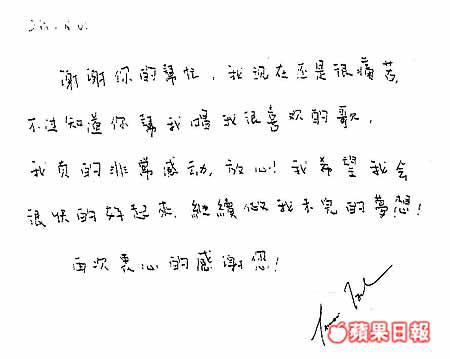 谢谢你的幫忙，我现在还是很痛苦，
不过知道你幫我唱我很喜欢的歌，
我真的非常感动，放心！我希望我会
很快的好起來，继續做我未完的夢想！
再次衷心的感谢您！
蘋果日報